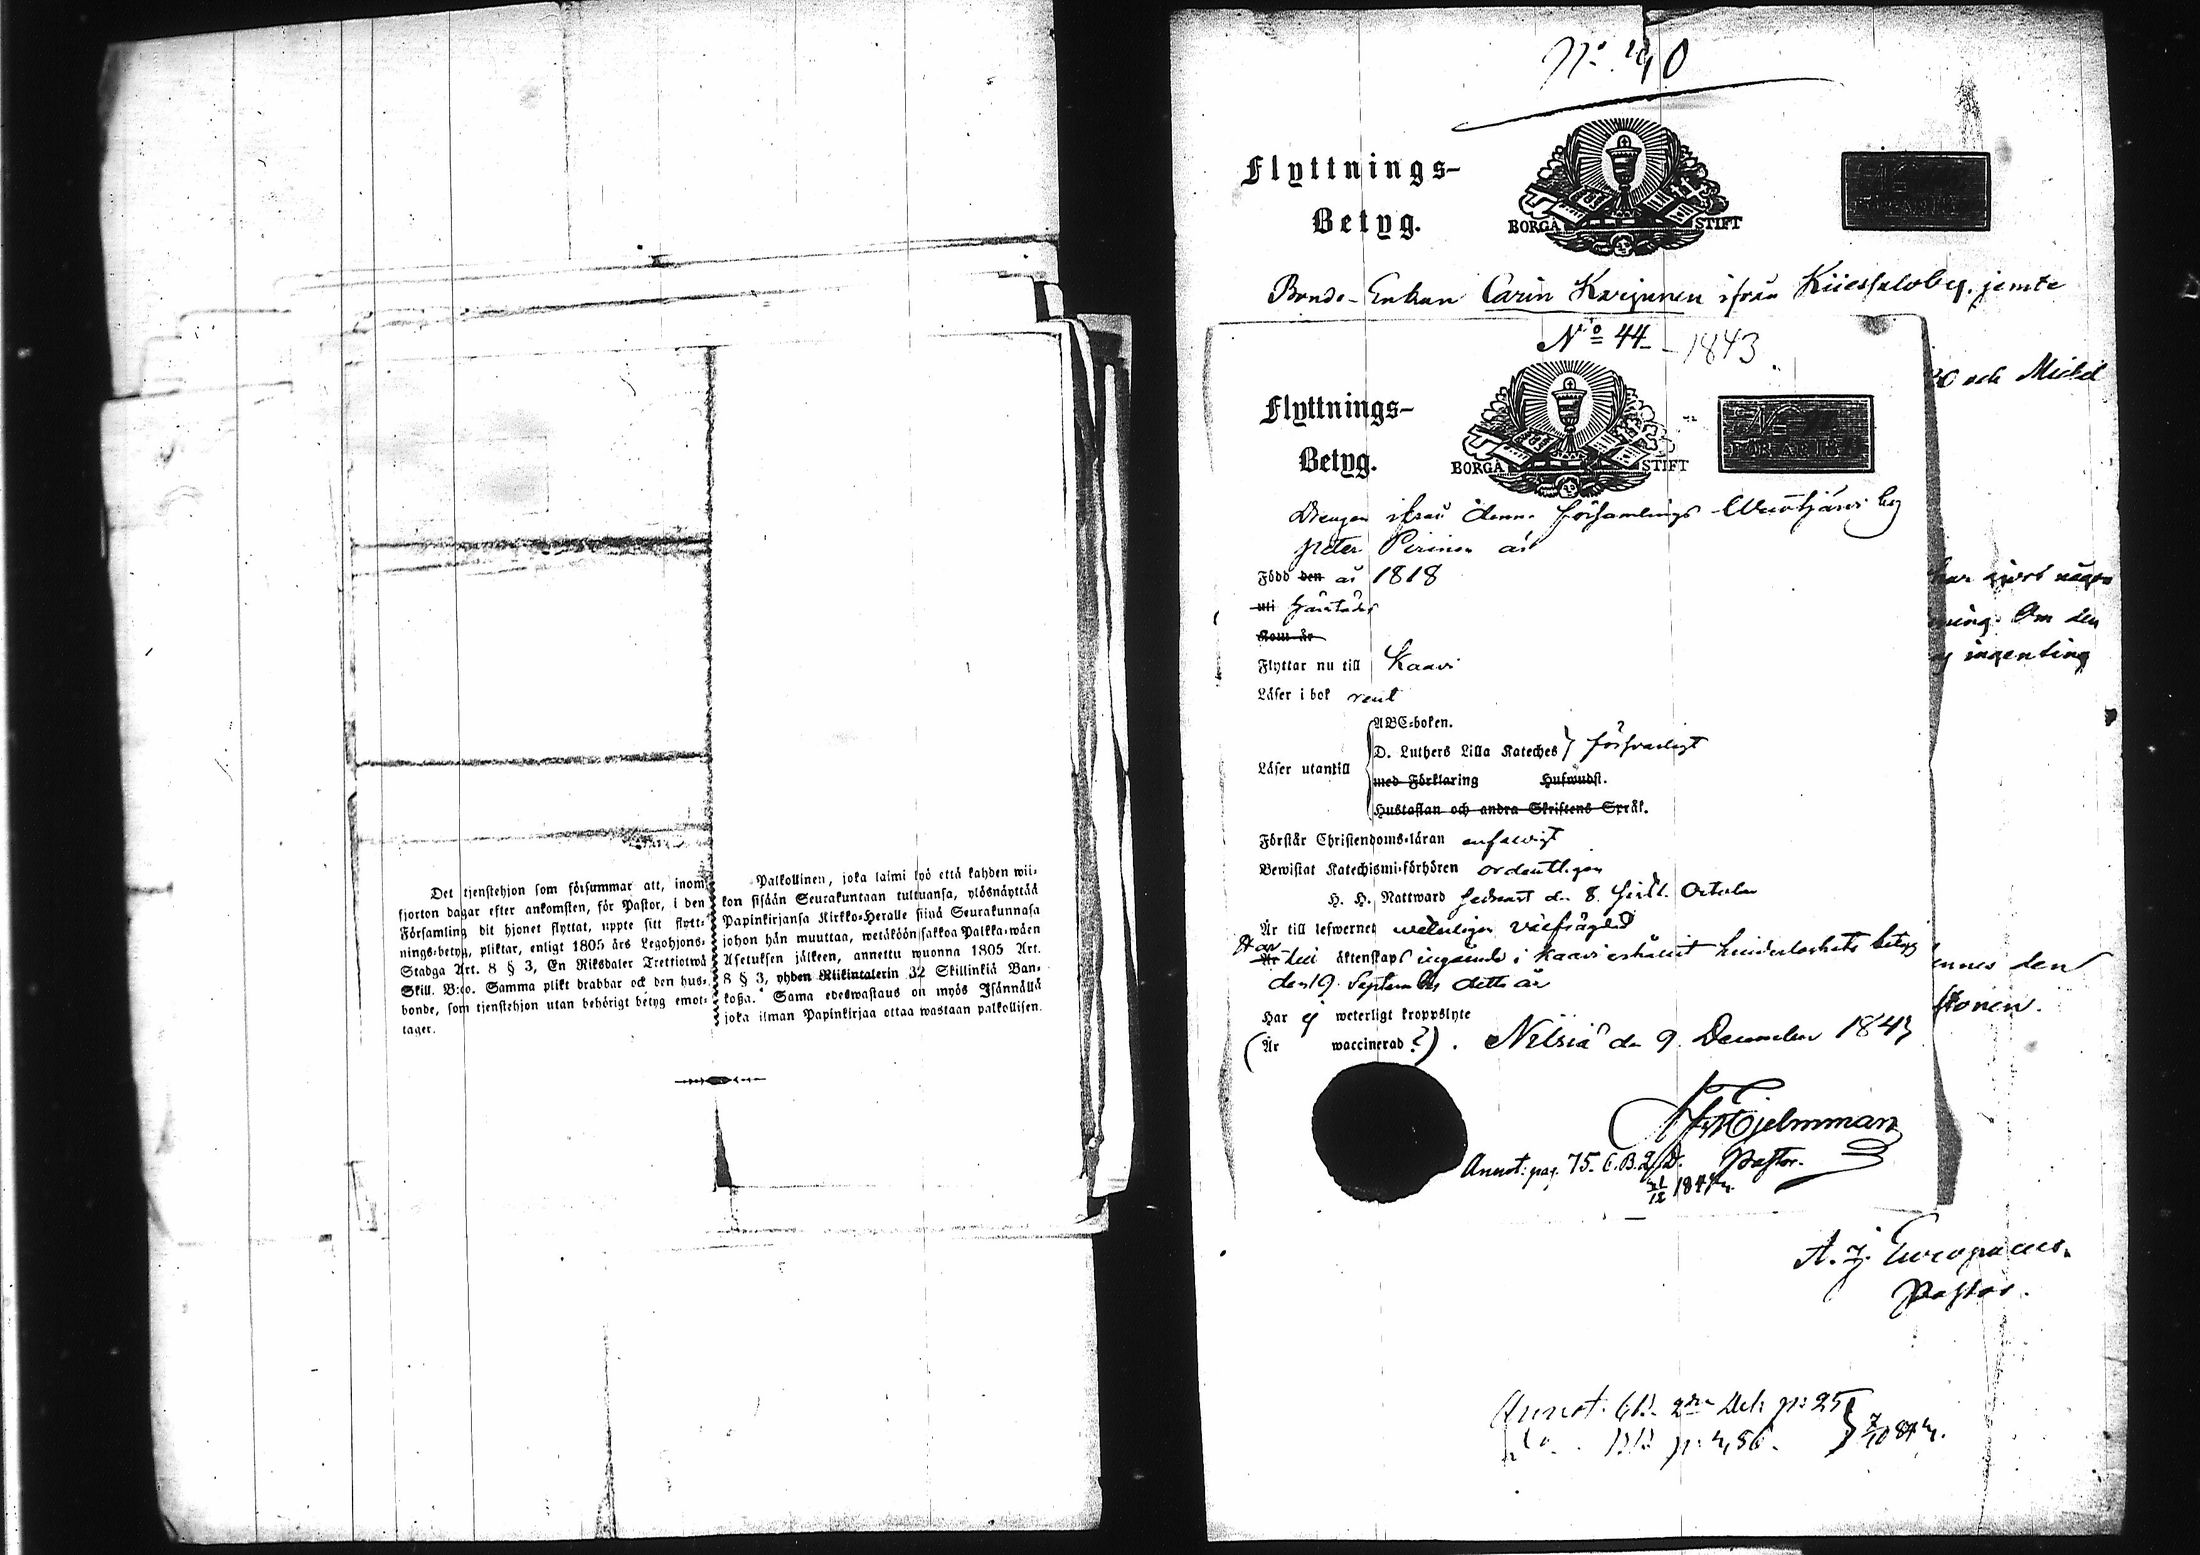 Det tjenstehjon som försummar att, inom
fjorton dagar efter ankomsten, för Pastor, i den
Församling dit hjonet flyttat, uppte sitt flytt-
nings-betyg, pliktar, enligt 1805 års Legohjons-
Stadga Art. 8 § 3, En Riksdaler Trettiotwå
Skill. B:co. Samma plikt drabbar ock den hus-
bonde, som tjenstehjon utan behörigt betyg emot-
tager.
Palkollinen, joka laimi lyö että kahden wii-
kon sisään Seurakuntaan tultuansa, ylösnäyttää
Papinkirjansa Kirkko-Heralle siinä Seurakunnasa
johon hän muuttaa, wetäköön sakkoa Palkka-wäen
Asetuksen jälkeen, annettu wuonna 1805 Art.
8 § 3, yhden Riikintalerin 32 Skillinkiä Ban-
koßa. Sama edeswastaus on myös Isännällä
joka ilman Papinkirjaa ottaa wastaan palkollisen.
No. 40
Flyttnings-
Betyg.
BORGÅ STIFT
Bonde-Enkan Carin Karjunen ifrån jemte
och Michel
No 44 - 1843
Flyttnings-
Betyg.
BORGÅ STIFT
FÖR ÅR 18
Drengen ifrån denna församlings by
Peter Pirinen är
Född den år 1818
uti härstädes
Kom år
Flyttar nu till Kaavi
Läser i bok rent
ABC-boken.
Läser utantill D. Luthers Lilla Kateches } försvarligt
med Förklaring Hufwudst.
Hustaflan och andra Skriftens Språk.
Förstår Christendoms-läran enfaldigt
Bewistat Katechismi-förhören ordentligen
H. H. Nattward sednast den 8. October
Är till lefwernet wederligen väl frägdad
Har till äktenskaps ingående i Kaavi erhållit hinderlöshets betyg
den 19 September detta år
Har ej weterligt kroppslyte
(Är waccinerad?). Nilsiä den 9 December 1843
Hjelmman
Pastor.
Annot: pag. 75. C.B. 2 D.
21/12 1843.
har gjort någon
ning. Om den
ingenting
den
A. J. Europaeus.
Pastor.
Annot. C.B. 2dra Del. p: 25